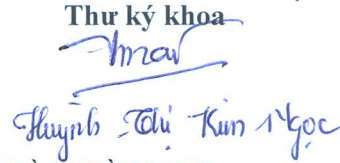 Thư ký khoa
Huỳnh Thị Kim Ngọc